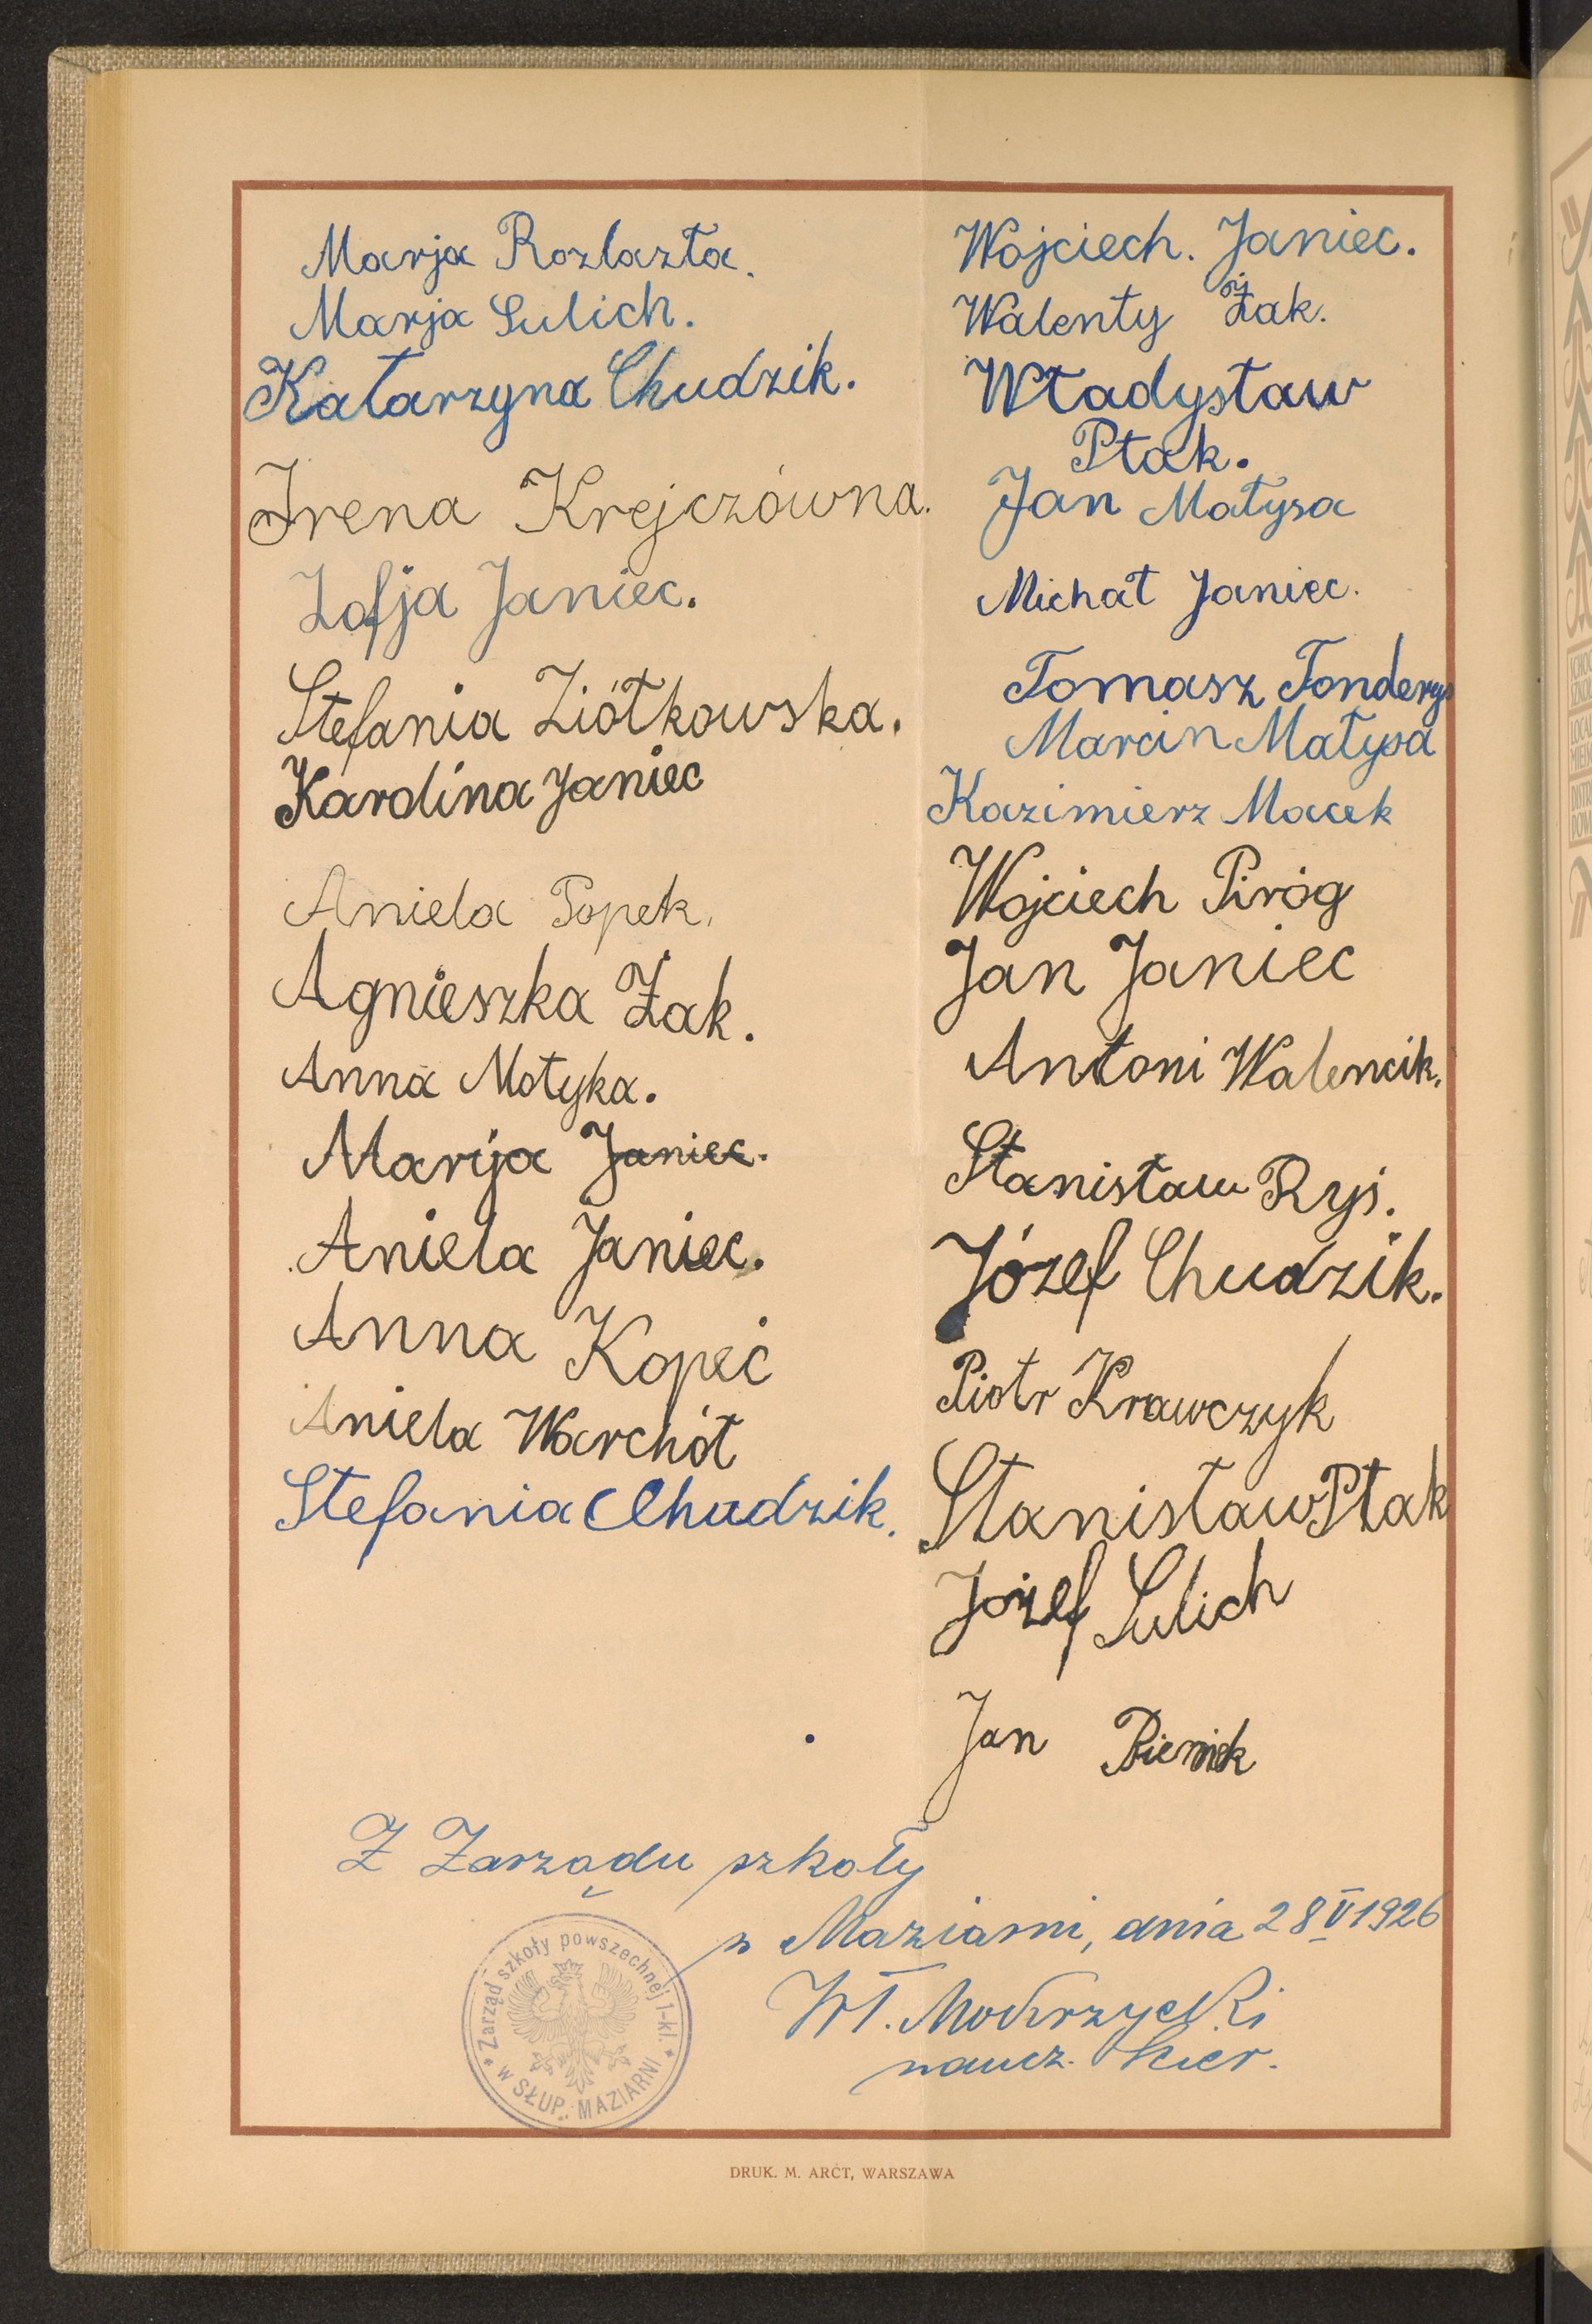 Marja Rozlazła.
Marja Sulich.
Katarzyna Chudzik.
Irena Krejczówna.
Zofja Janiec.
Stefania Ziółkowska.
Karolina Janiec
Aniela Popek.
Agnieszka Żak.
Anna Motyka.
Marija Janiec.
Aniela Janiec.
Anna Kopeć
Aniela Warchół
Stefania Chudzik.
Wojciech. Janiec.
Walenty Żak.
Władysław
Ptak.
Jan Matysa
Michał Janiec.
Tomasz Fonderys
Marcin Matysa
Kazimierz Macek
Wojciech Piróg
Jan Janiec
Antoni Walencik.
Stanisław Ryś.
Józef Chudzik.
Piotr Krawczyk
Stanisław Ptak
Józef Sulich
Jan
Z Zarządu szkoły
w Maziarni, dnia 28 V 1926
Wł. Mokrzycki
naucz. kier.
Zarząd szkoły powszechnej 1-kl.
w SŁUP. MAZIARNI
DRUK. M. ARCT, WARSZAWA